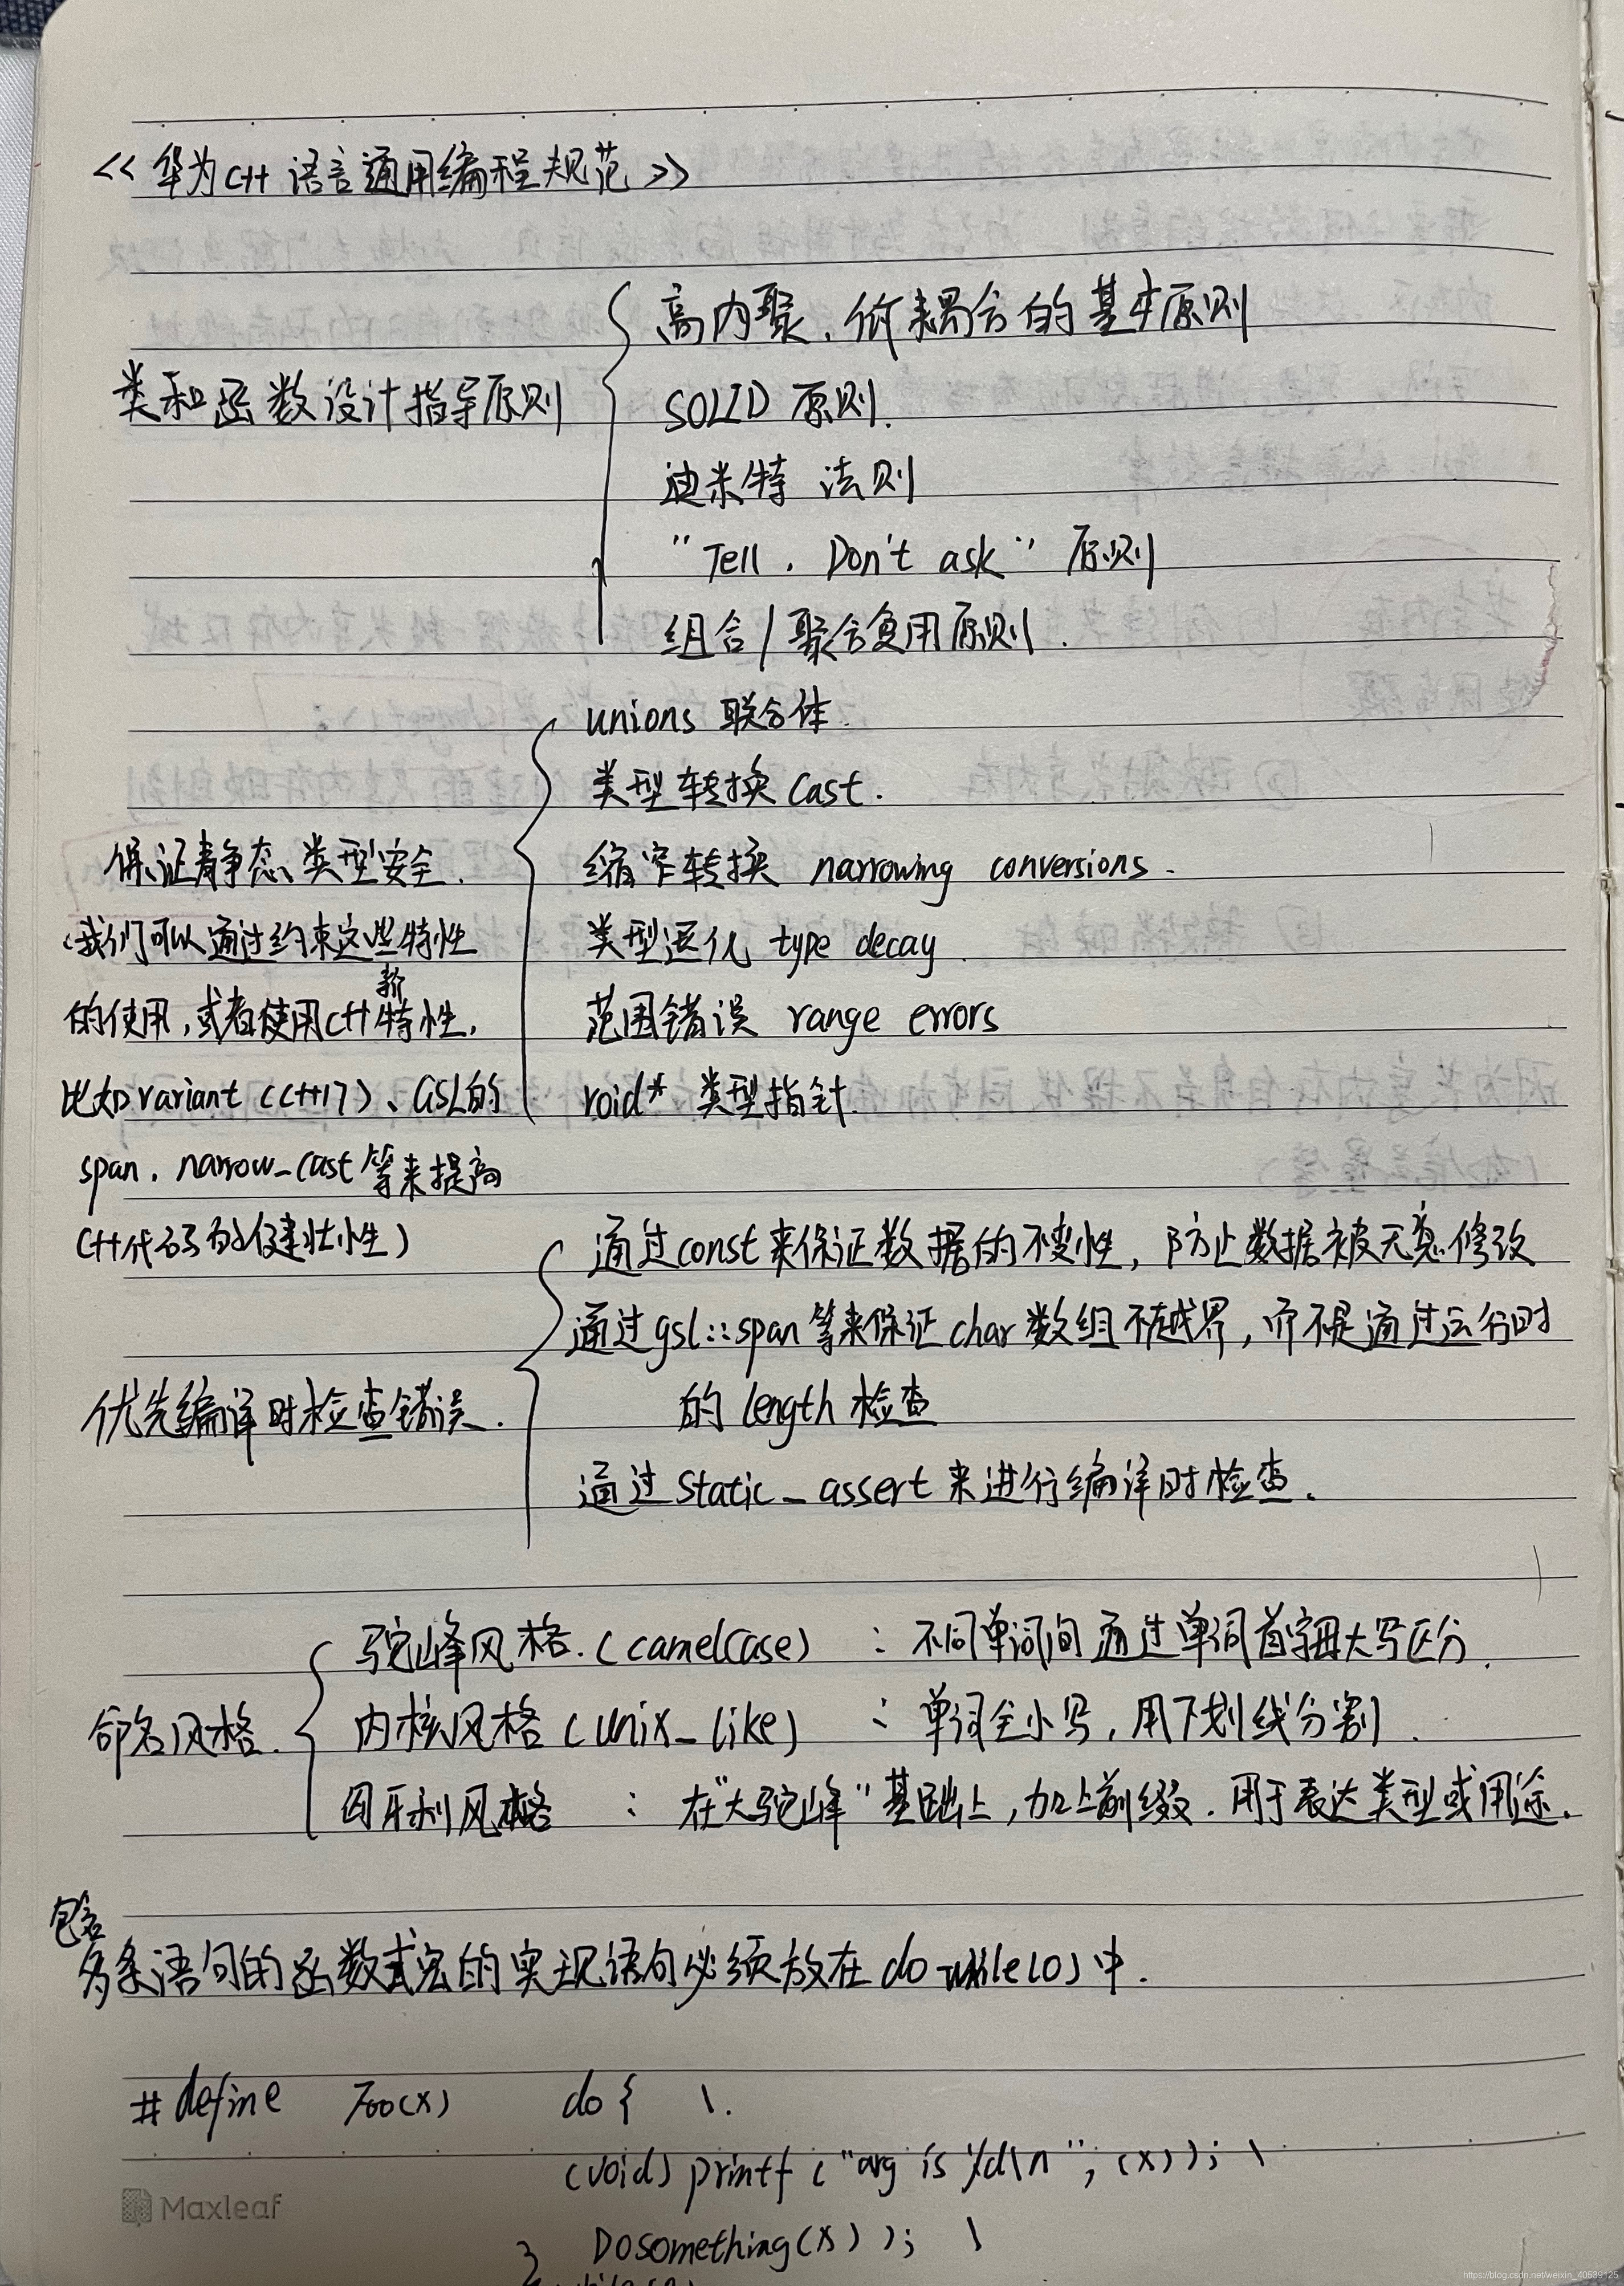 << 华为C++ 语言通用编程规范 >>
类和函数设计指导原则
高内聚、低耦合的基本原则
SOLID 原则.
迪米特 法则
"Tell, Don't ask" 原则
组合/聚合复用原则.
保证静态类型安全.
(我们可以通过约束这些特性
的使用,或者使用C++新特性,
比如variant (C++17)、GSL的
span, narrow_cast等来提高
C++代码的健壮性)
unions 联合体.
类型转换 cast.
缩窄转换 narrowing conversions.
类型退化 type decay.
范围错误 range errors
void* 类型指针.
优先编译时检查错误.
通过const来保证数据的不变性,防止数据被无意修改
通过gsl::span等来保证char数组不越界,而不是通过运行时
的 length 检查
通过 static_assert 来进行编译时检查.
命名风格.
驼峰风格.(camelCase) : 不同单词间通过单词首字母大写区分.
内核风格(unix_like) : 单词全小写,用下划线分割.
匈牙利风格 : 在"大驼峰"基础上,加上前缀.用于表达类型或用途.
包含
多条语句的函数式宏的实现语句必须放在do while(0)中.
#define Foo(x) do { \.
(void) printf ("arg is %d\n", (x)); \
DoSomething(x)); \
}
while(0)
Maxleaf
https://blog.csdn.net/weixin_40539125